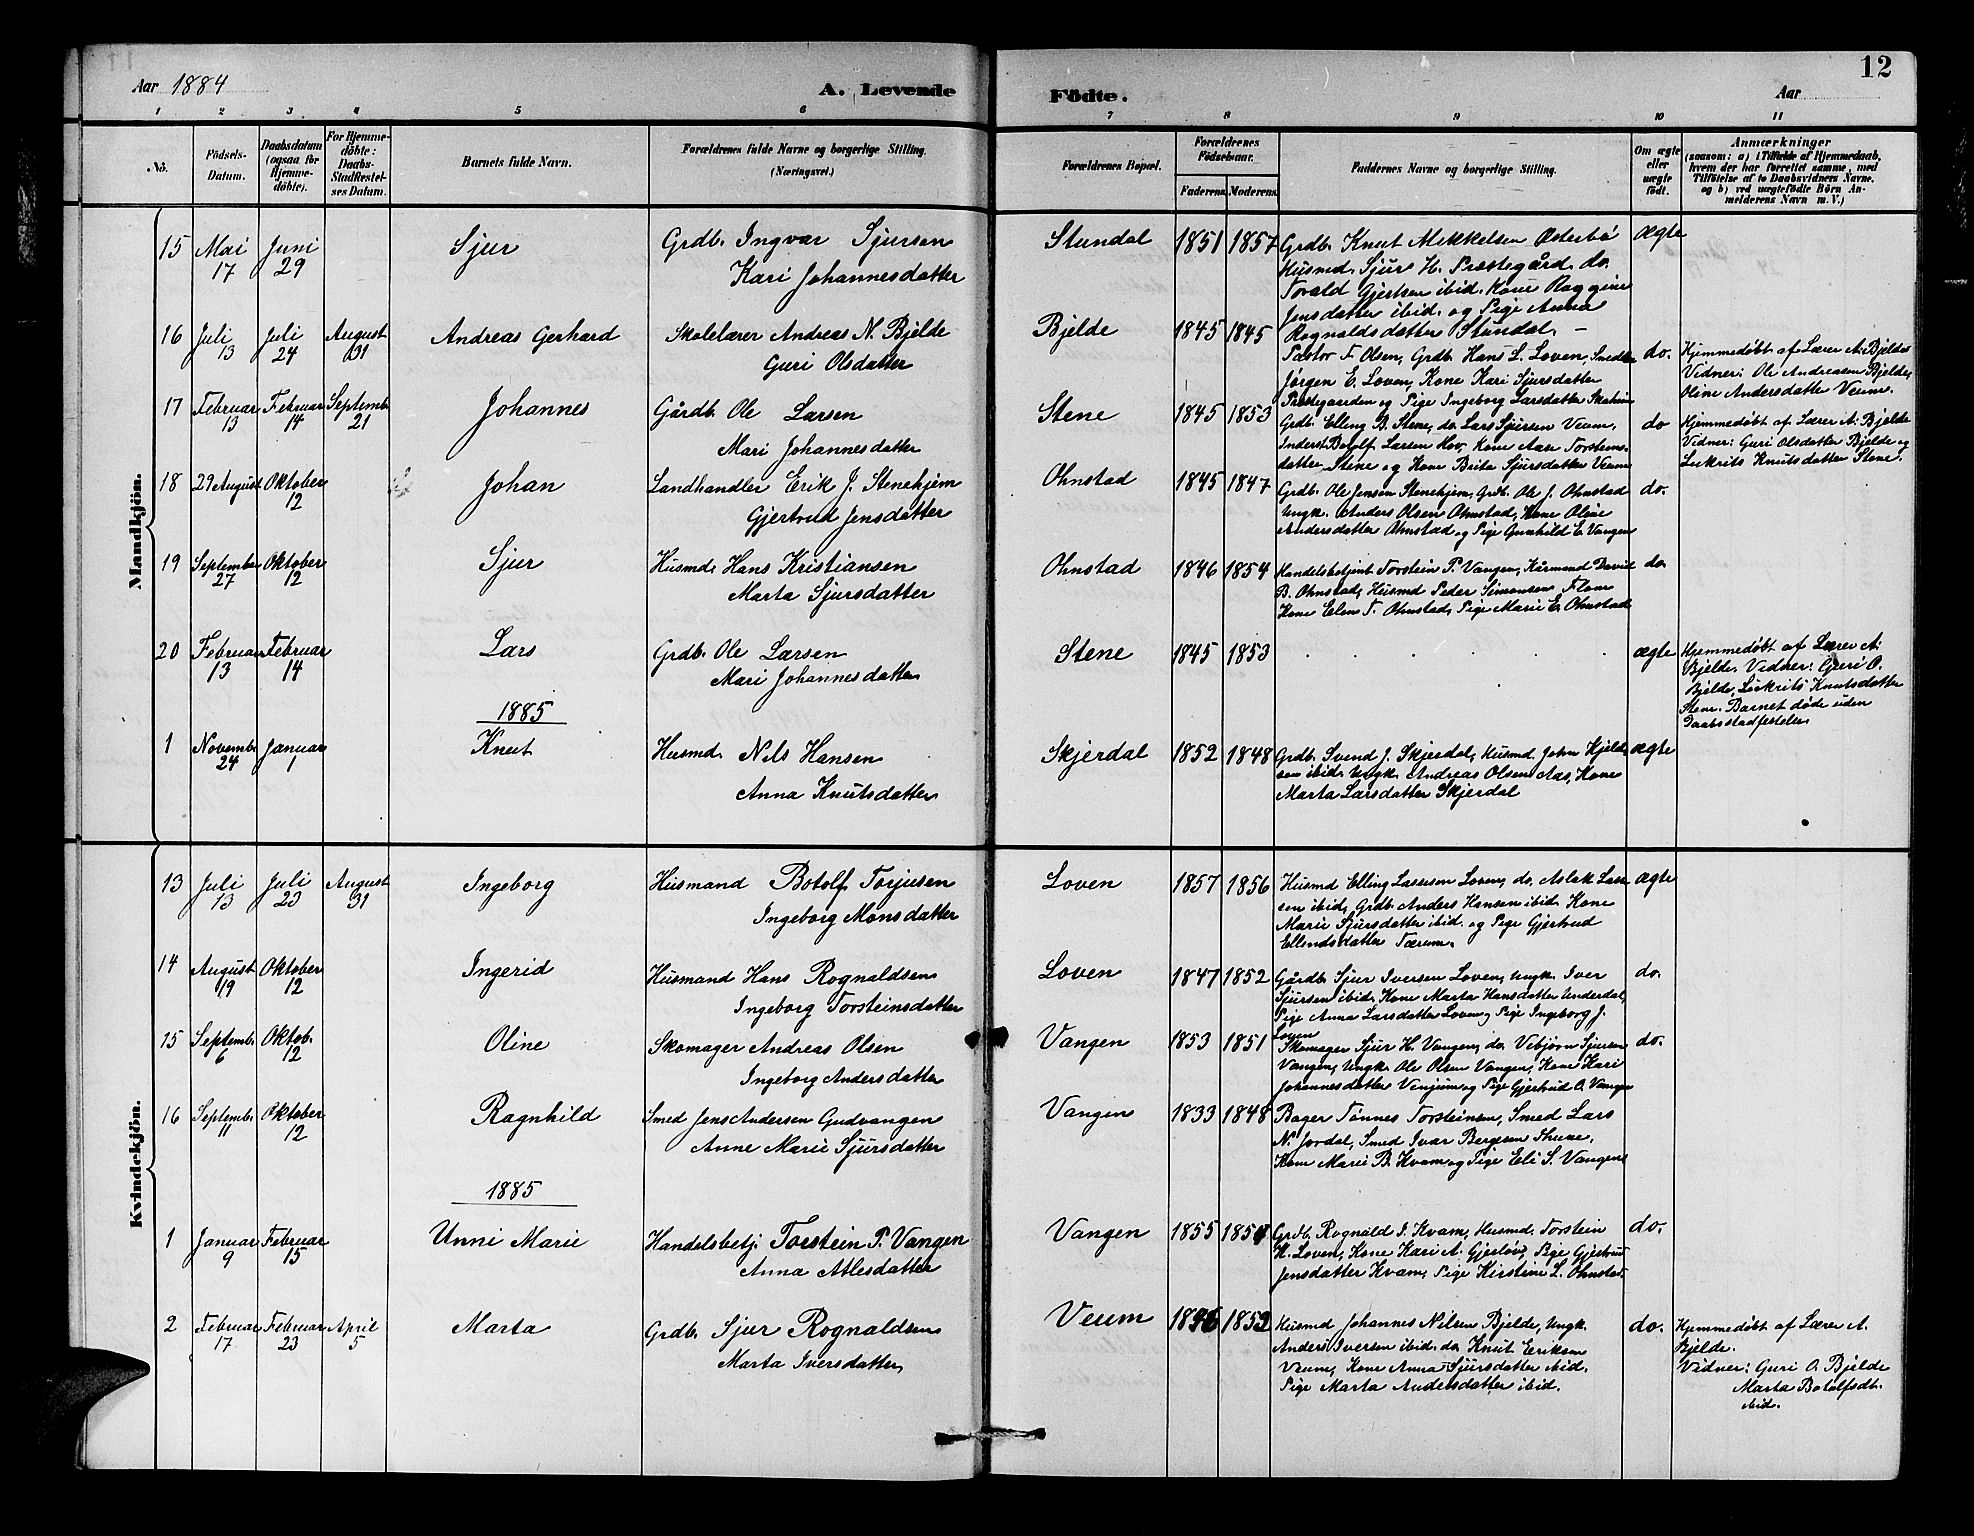 Aar 1884
A. Levende
Födte.
Aar
12
1 2 3 4 5 6 7 8 9 10 11
No.
Födsels-
Datum.
Daabsdatum
(ogsaa for
Hjemme-
döbte).
For Hjemme-
döbte:
Daabs-
Stadfæstel-
ses Datum.
Barnets fulde Navn.
Forældrenes fulde Navne og borgerlige Stilling.
(Næringsvei.)
Forældrenes Bopæl.
Forældrenes
Födselsaar.
Faderens. Moderens.
Faddernes Navne og borgerlige Stilling.
Om ægte
eller
uægte
födt.
Anmærkninger
(saasom: a) i Tilfælde af Hjemmedaab,
hvem der har forrettet samme, med
Tilföielse af to Daabsvidners Navne,
og b) ved uægtefödte Börn An-
melderens Navn m. V.)
Mandkjön.
15 Mai 17 Juni 29 Sjur Grdb. Ingvar Sjursen
Kari Johannesdatter
Stundal 1851 1857
Grdb. Knut Mikkelsen Østerbø
Husmd. Sjur H. Præstegård do.
Torald Gjertsen ibid. Kone Raggine
Jensdatter ibid. og Pige Anna
Rognaldsdatter Stundal. –
ægte
16 Juli 13 Juli 24 August 31 Andreas Gerhard Skolelærer Andreas N. Bjelde
Guri Olsdatter
Bjelde 1845 1845
Pastor F. Olsen, Grdb. Hans L. Loven, Smed
Jørgen E. Loven, Kone Kari Sjursdatter
Præstegaarden og Pige Ingeborg Larsdatter
do.
Hjemmedøbt af Lærer A. Bjelde
Vidner: Ole Andreasen Bjelde,
Oline Andersdatter Veum.
17 Februar 13 Februar 14 Septemb. 21 Johannes Gårdb. Ole Larsen
Mari Johannesdatter
Stene 1845 1853
Grdb. Elling B. Stene, do. Lars Sjursen Veum,
Inderst Botolf Larsen Hov, Kone Aase Torsteins-
datter Stene og Kone Brita Sjursdatter Veum
do
Hjemmedøbt af Lærer A. Bjelde
Vidner: Guri Olsdatter Bjelde og
Lukrits Knutsdatter Stene.
18 29 August Oktober 12 Johan Landhandler Erik J. Stenehjem
Gjertrud Jensdatter
Ohnstad 1845 1847
Grdb. Ole Jensen Stenehjem, Grdb. Ole J. Ohnstad
Ungk. Anders Olsen Ohnstad, Kone Oline
Andersdatter Ohnstad og Pige Gunhild E. Vangen
do.
19 September 27 Oktober 12 Sjur Husmd. Hans Kristiansen
Marta Sjursdatter
Ohnstad 1846 1854
Handelsbetjent Torstein P. Vangen, Husmand David
B. Ohnstad, Husmd Peder Simonsen Flom
Kone Elen T. Ohnstad, Pige Marie E. Ohnstad
do
20 Februar 13 Februar 14 Lars Grdb. Ole Larsen
Mari Johannesdatter
Stene 1845 1853
ægte
Hjemmedøbt af Lærer A.
Bjelde. Vidner: Guri O.
Bjelde, Lukrits Knutsdatter
Stene. Barnet døde uden
Daabsstadfestelse.
1885
1 Novemb. 24 Januar 1 Knut Husmd. Nils Hansen
Anna Knutsdatter
Skjerdal 1852 1848
Grdb. Svend J. Skjerdal, Husmd. John Kjeld-
sen ibid, Ungk. Andreas Olsen Aas, Kone
Marta Larsdatter Skjerdal
ægte
Kvindekjön.
13 Juli 13 Juli 23 August 31 Ingeborg Husmand Botolf Torjusen
Ingeborg Monsdatter
Loven 1857 1856
Husmd Elling Lassesen Loven, do. Aslak Las-
sen ibid, Grdb. Anders Hansen ibid. Kone
Marie Sjursdatter ibid. og Pige Gjertrud
Ellendsdatter Tærum.
ægte
14 August 19 Oktober 12 Ingerid Husmand Hans Rognaldsen
Ingeborg Torsteinsdatter
Loven 1847 1852
Gårdb. Sjur Iversen Loven, Ungk. Iver
Sjursen ibid, Kone Marta Hansdatter Underdal,
Pige Anna Larsdatter Loven og Pige Ingeborg J.
Loven
do.
15 Septemb. 6 Oktob. 12 Oline Skomager Andreas Olsen
Ingeborg Andersdatter
Vangen 1853 1851
Skomager Sjur H. Vangen, do. Vibjørn Sjursen
Vangen, Ungk. Ole Olsen Vangen, Kone Kari
Johannesdatter Venjum og Pige Gjertrud O. Vangen
do.
16 Septemb. 11 Oktober 12 Ragnhild Smed Jens Andersen Gudvangen
Anne Marie Sjursdatter
Vangen 1833 1848
Bager Tønnes Torsteinsen, Smed Lars
N. Jordal, Smed Ivar Bergesen Thune,
Kone Marie B. Kvam og Pige Eli S. Vangen
1885
1 Januar 9 Februar 15 Unni Marie Handelsbetj. Torstein P. Vangen
Anna Atlesdatter
Vangen 1855
Grdb. Rognald I. Kvam, Husmd. Torstein
K. Loven, Kone Kari A. Gjerløv, Pige Gjertrud
Jensdatter Kvam, Pige Kirstine L. Ohnstad.
do.
2 Februar 17 Februar 23 April 5 Marta Grdb. Sjur Rognaldsen
Marta Iversdatter
Veum 1846 1853
Husmd Johannes Nilsen Bjelde, Ungk.
Anders Iversen ibid. do Knut Eriksen
Veum, Kone Anna Sjursdatter ibid.
Pige Marta Andersdatter ibid.
do.
Hjemmedøbt af Lærer A.
Bjelde.
Vidner: Guri O. Bjelde
Marta Botolfsdt.
ibid.